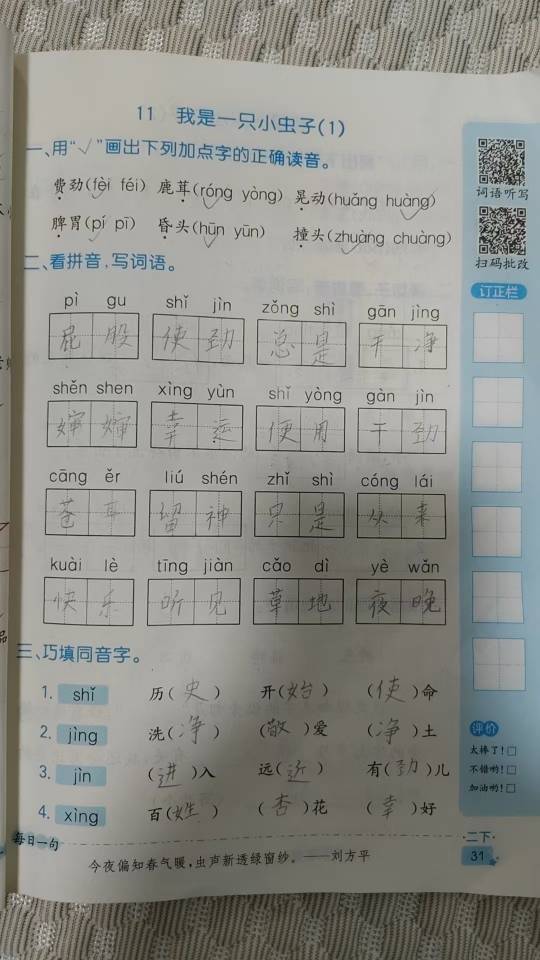 11 我是一只小虫子(1)
一、用“√”画出下列加点字的正确读音。
费劲(fèi féi) 鹿茸(róng yòng) 晃动(huǎng huàng)
脾胃(pí pī) 昏头(hūn yūn) 撞头(zhuàng chuàng)
二、看拼音,写词语。
pì gu shǐ jìn zǒng shì gān jìng
屁股 使劲 总是 干净
shěn shen xìng yùn shǐ yòng gàn jìn
婶婶 幸运 使用 干劲
cāng ěr liú shén zhǐ shì cóng lái
苍耳 留神 只是 从来
kuài lè tīng jiàn cǎo dì yè wǎn
快乐 听见 草地 夜晚
三、巧填同音字。
1. shǐ 历(史) 开(始) (使)命
2. jìng 洗(净) (敬)爱 (净)土
3. jìn (进)入 远(近) 有(劲)儿
4. xìng 百(姓) (杏)花 (幸)好
每日一句
今夜偏知春气暖,虫声新透绿窗纱。——刘方平
词语听写
扫码批改
订正栏
评价
太棒了!□
不错哟!□
加油哟!□
二下
31